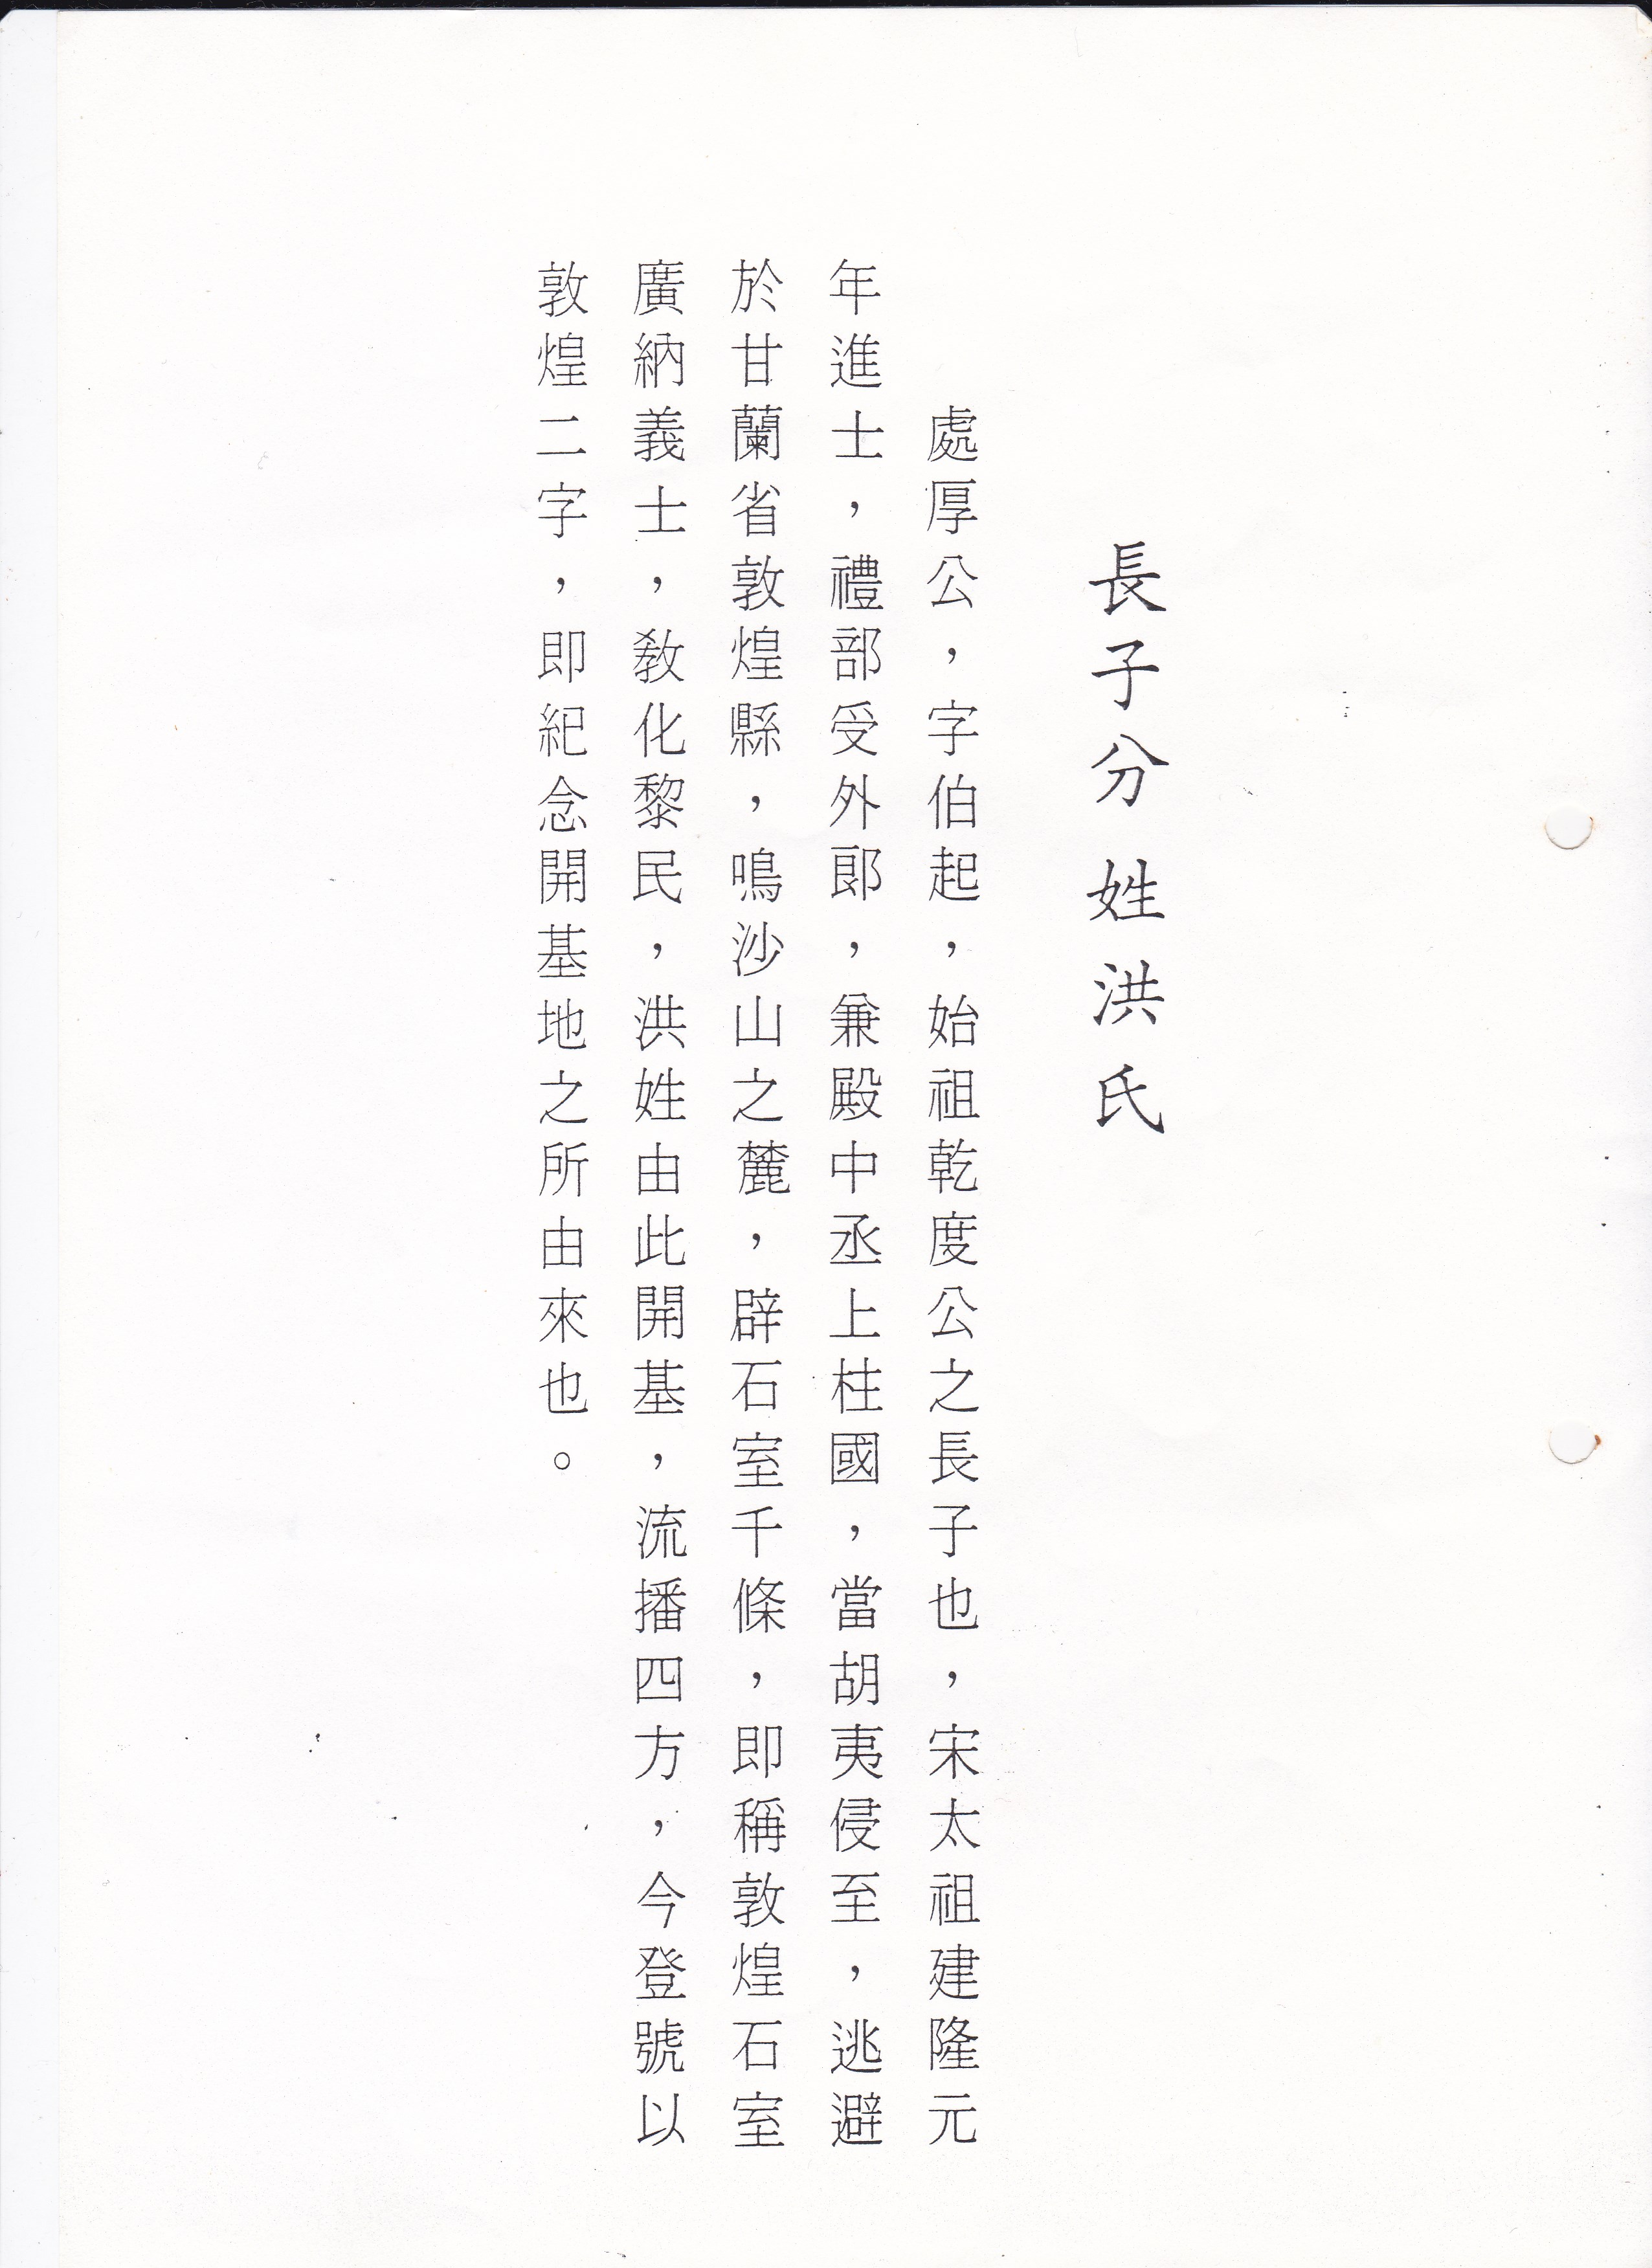 長子分姓洪氏
處厚公，字伯起，始祖乾度公之長子也，宋太祖建隆元
年進士，禮部受外郎，兼殿中丞上柱國，當胡夷侵至，逃避
於甘蘭省敦煌縣，鳴沙山之麓，辟石室千條，即稱敦煌石室
廣納義士，教化黎民，洪姓由此開基，流播四方，今登號以
敦煌二字，即紀念開基地之所由來也。